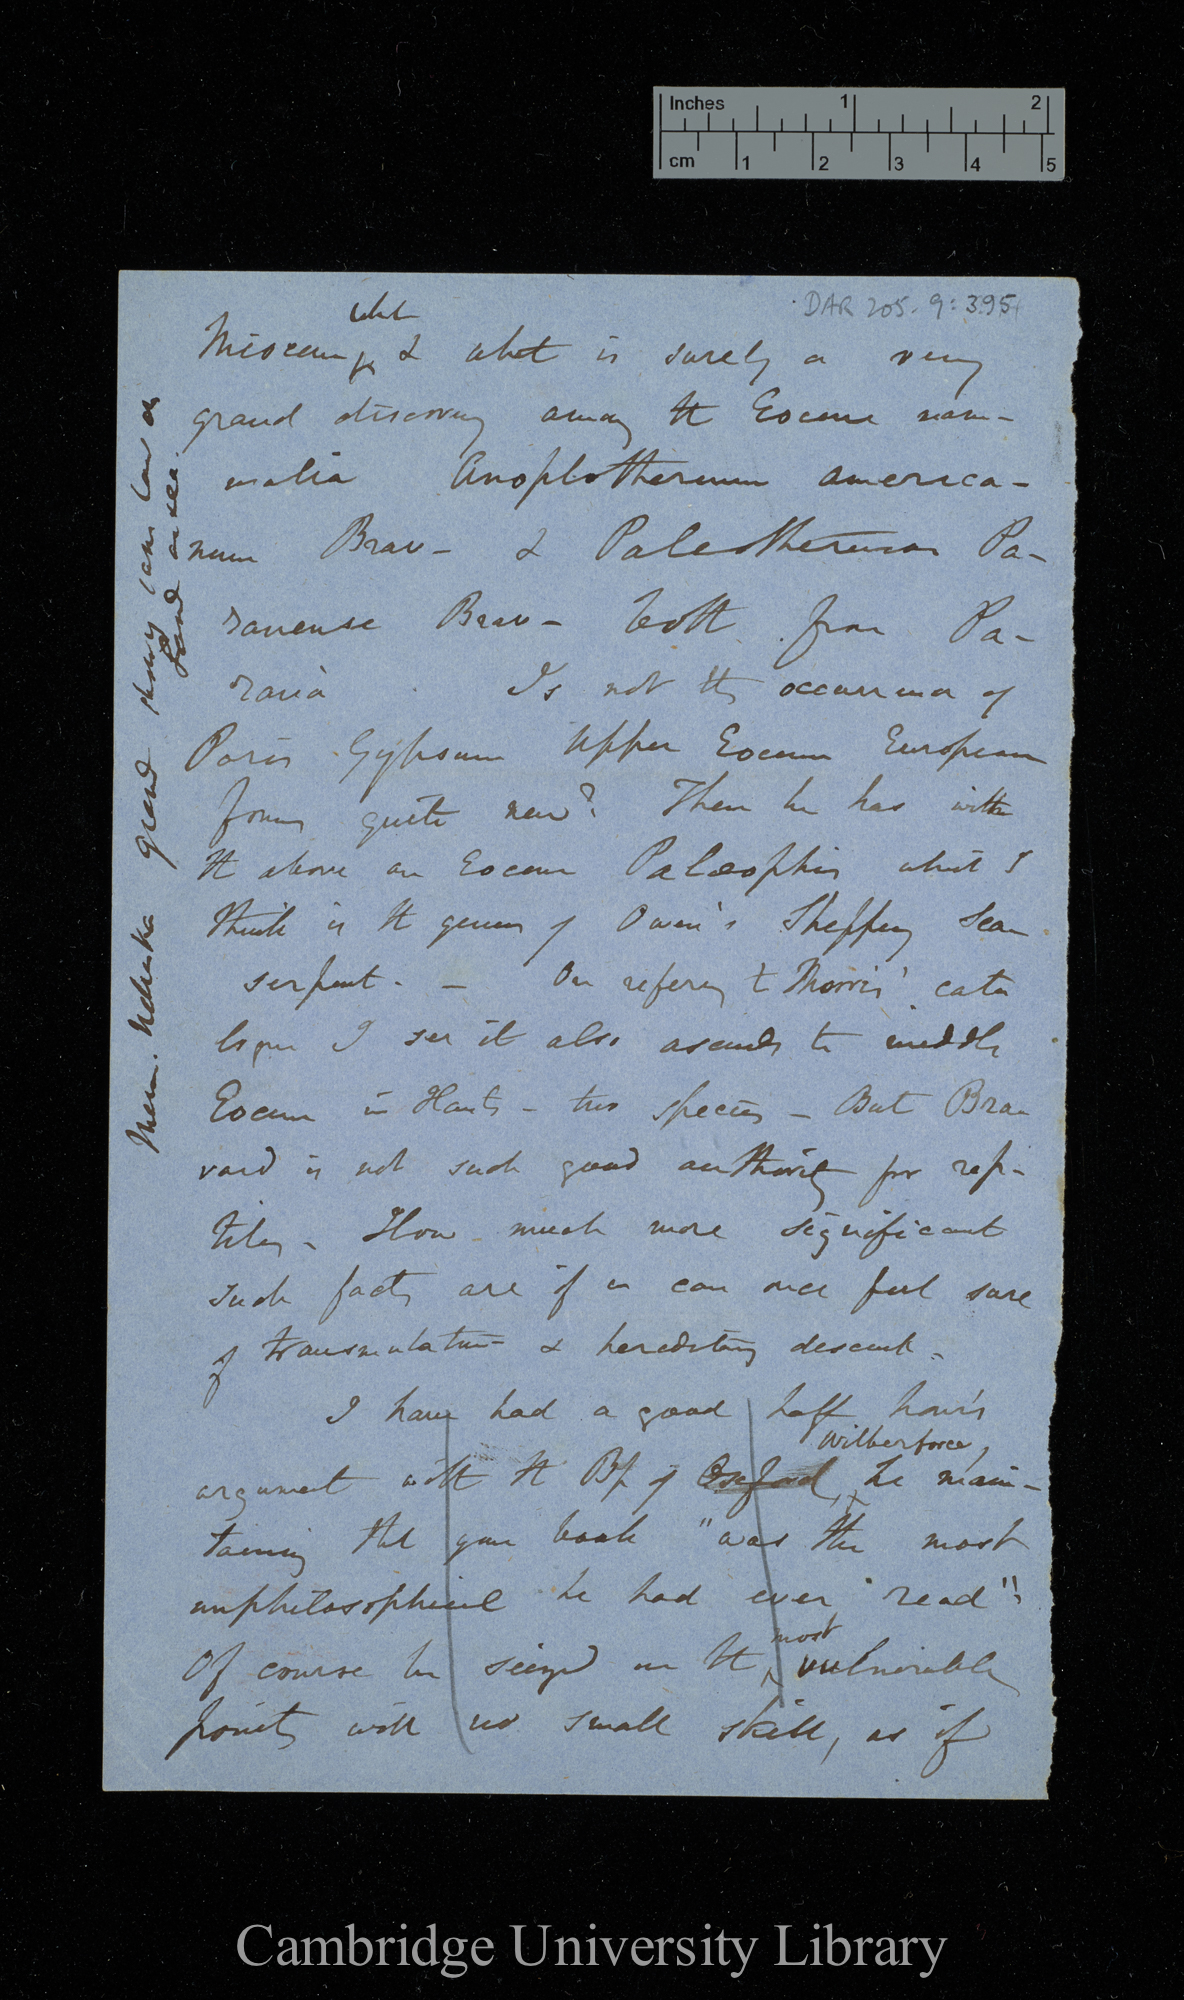 Inches 1 2
cm 1 2 3 4 5
DAR 205. 9: 395
Miocene, & what is surely a very
grand discovery among the Eocene mam-
malia Anoplotherium america-
num Brav- & Paleotherium Pa-
ranense Brav- both from Pa-
rana Is not the occurrence of
Paris Gypsum Upper Eocene European
forms quite new? Then he has with
the above an Eocene Palæophis which I
think is the genus of Owen's Sheppey Sea
serpent. — On refering to Morris' cata
logue I see it also ascends to middle
Eocene in Hants - two species - But Bra
vard is not such good authority for rep-
tiles - How much more significant
such facts are if we can once feel sure
of transmutation & hereditary descent -
I have had a good half hour's
Wilberforce,
argument with the Bp of Oxford, he main-
taining that your book "was the most
unphilosophical he had ever read"!
most
Of course he seized on the vulnerable
points with no small skill, as if
Mem. Nebraska grand proving same law on
Land as sea.
Cambridge University Library